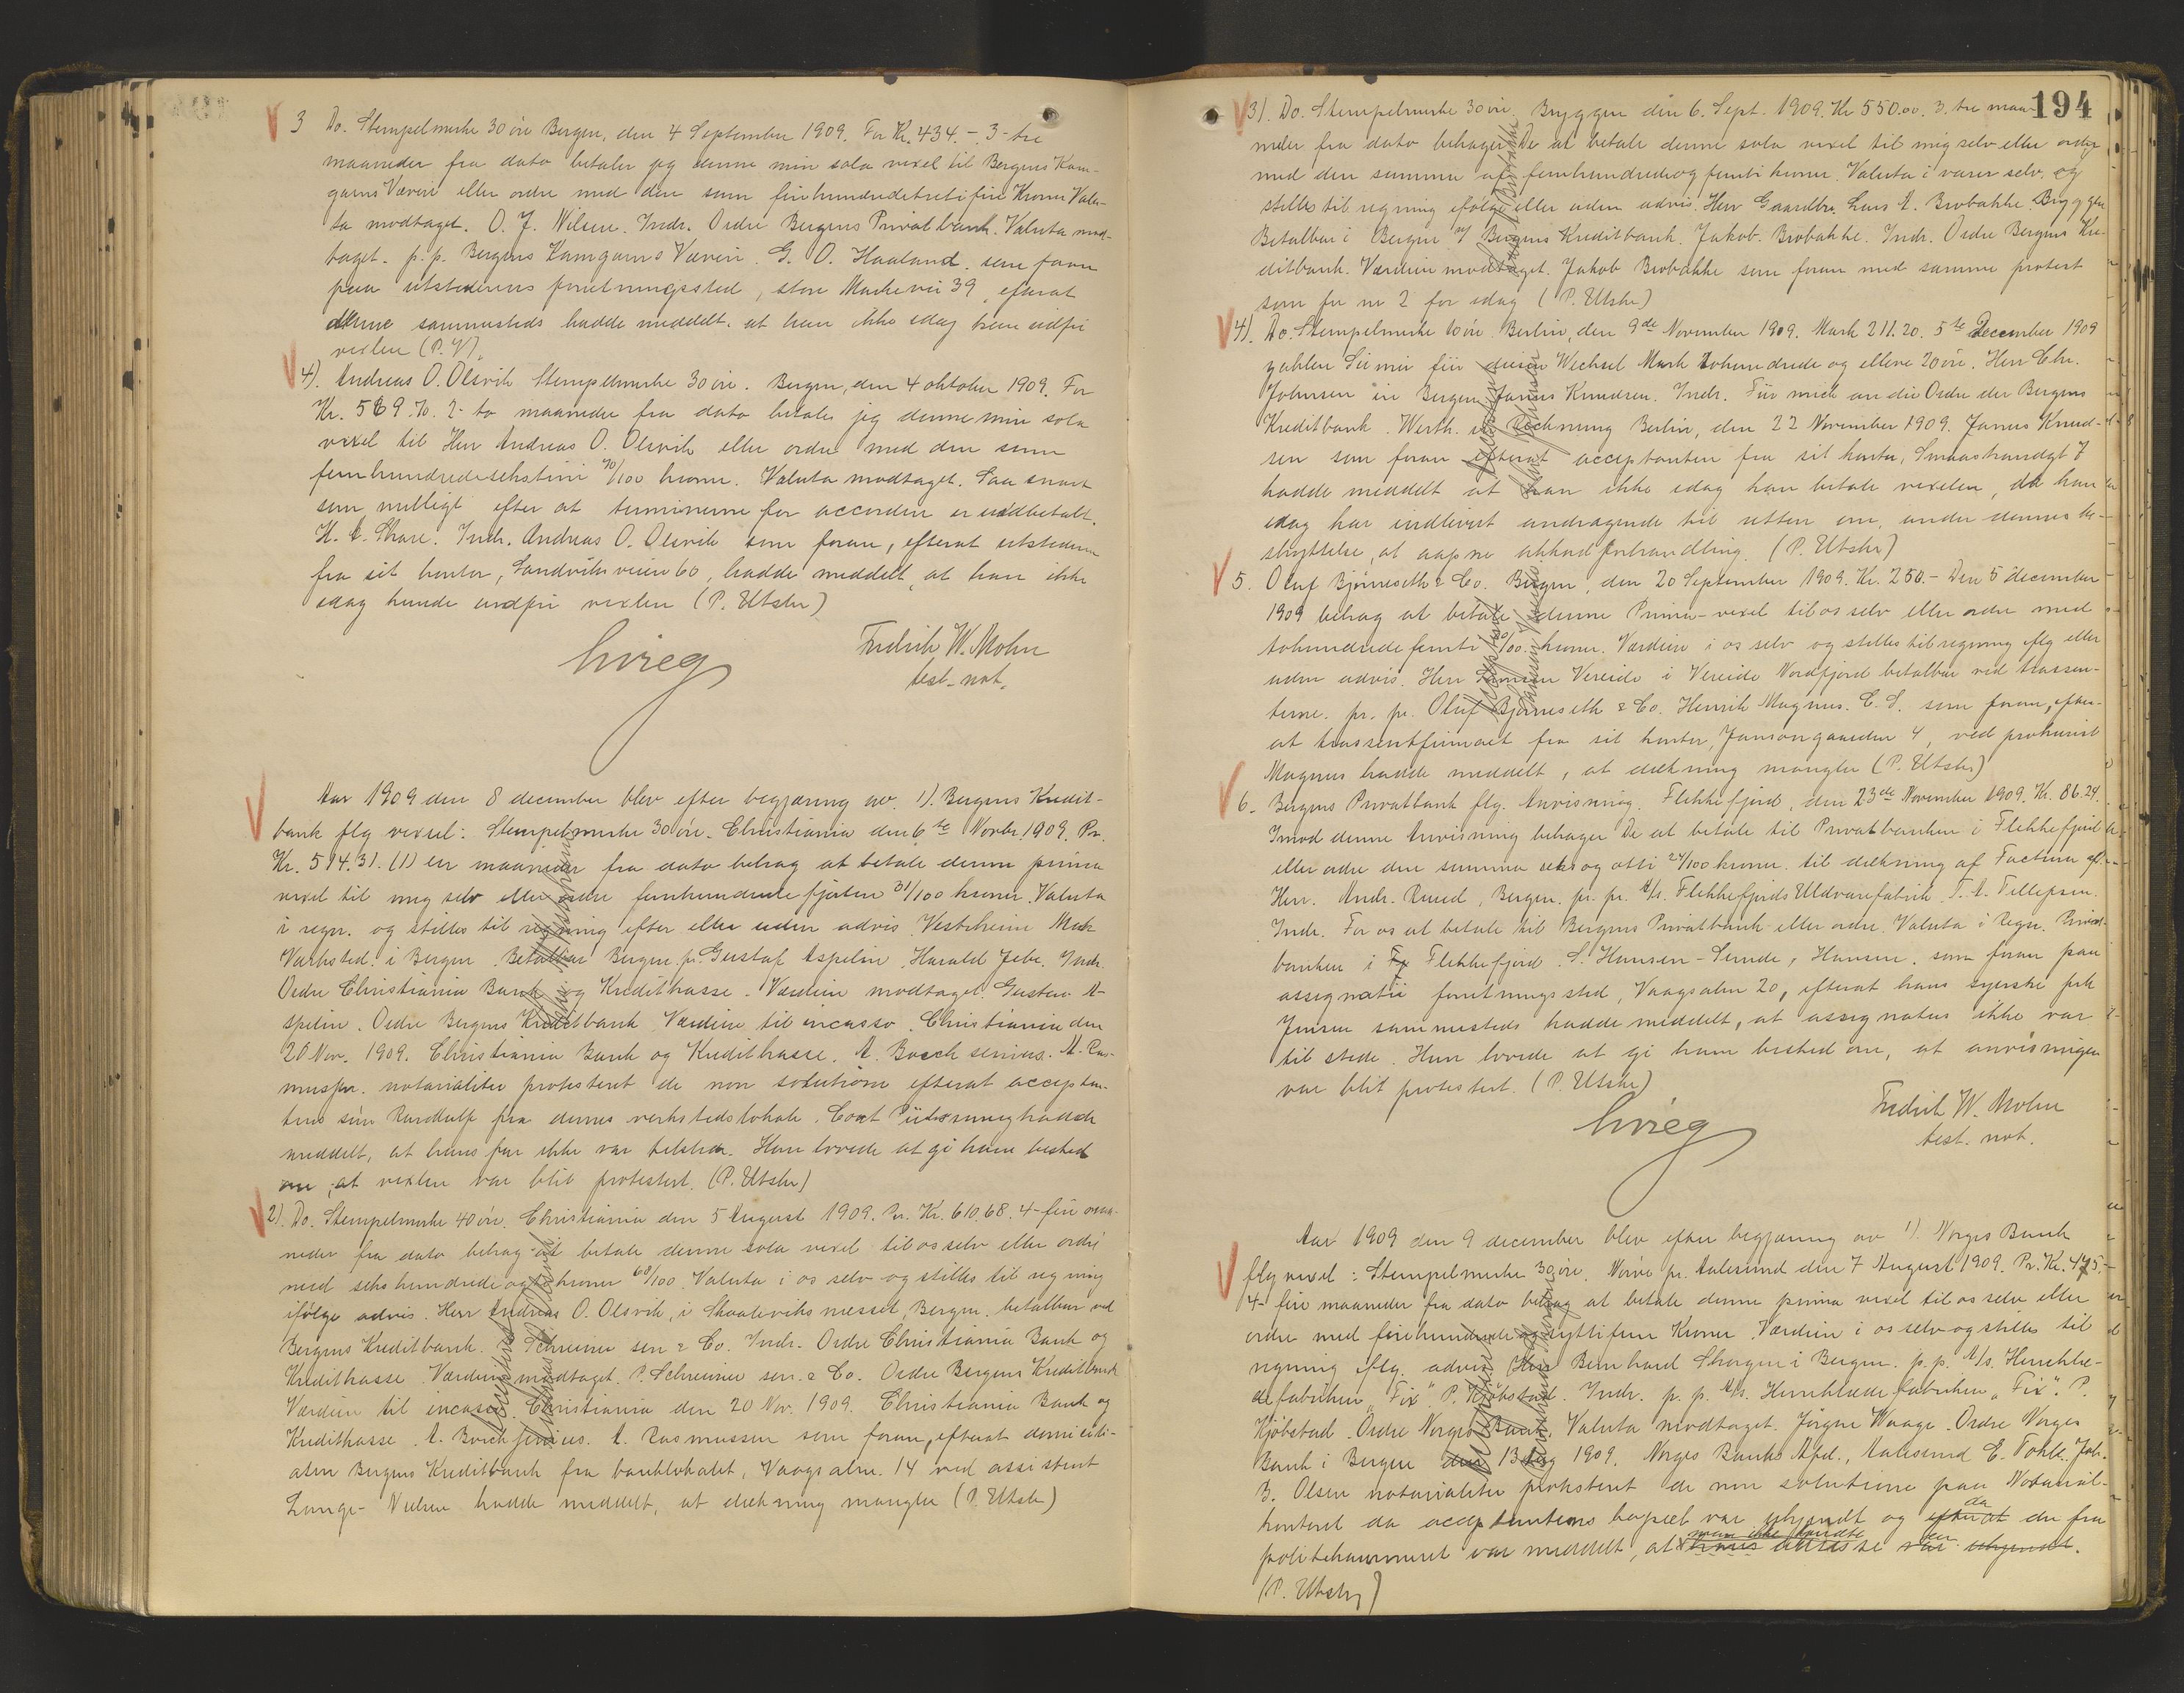 3 Do. Stempelmerke 30 öre Bergen, den 4 September 1909. For Kr. 434.- 3- tre
maaneder fra dato betaler jeg denne min sola vexel til Bergens Kam-
garns Væveri eller ordre med den sum firehundredetretifire Kroner Valu-
ta modtaget. O. J. Nilsen. Indr. Ordre Bergens Privatbank. Valuta mod-
taget. p.p. Bergens Kamgarns Væveri. G. O. Haaland. som foran
paa utstederens forretningssted, store Markevei 39, efterat
denne sammesteds hadde meddelt, at han ikke idag kan indfri
vexlen (P. U).
4). Andreas O. Olsvik Stempelmerke 30 öre. Bergen, den 4 oktober 1909. For
Kr. 569.70. 2- to maaneder fra dato betaler jeg denne min sola
vexel til Herr Andreas O. Olsvik eller ordre med den sum
femhundredesekstini 70/100 kroner. Valuta modtaget. Saa snart
som muligt efter at terminerne for accorden er uddbetalt.
H. C. Skare. Indr. Andreas O. Olsvik som foran, efterat utstederen
fra sit kontor, Sandviksveien 60, hadde meddelt, at han ikke
idag kunde indfri vexlen (P. Utstr)
Fredrik W. Mohn
test. not.
Aar 1909 den 8 december blev efter begjæring av 1). Bergens Kredit-
bank flg vexsel: Stempelmerke 30 öre. Christiania den 6te Novbr. 1909. Pr.
Kr. 514.31. (1) en maaneder fra dato behag at betale denne prima
vexel til mig selv eller ordre femhundrede fjorten 31/100 kroner. Valuta
i regn. og stilles til regning efter eller uden advis Vestheim Mek
Værksted i Bergen Betalbar Bergen. pr. Gustaf Aspelin. Harald Jebe. Indr.
Ordre Christiania Bank og Kreditkasse. Værdien modtaget. Gustav A-
spelin. Ordre Bergens Kreditbank Værdien til incasso. Christiania den
20 Nov. 1909. Christiania Bank og Kreditkasse. A. Borch senius. A. Ras-
mussen. notarialiter protesteret de non solutione efterat acceptan-
tens sön Randulf fra dennes verkstedslokale. hadde
meddelt, at hans far ikke var tilstede. Han lovede at gi ham besked
om, at vexlen var blit protestert. (P. Utstr)
2). Do. Stempelmerke 40 öre. Christiania den 5 August 1909. Pr. Kr. 610.68. 4- fire maa-
neder fra dato behag at betale denne sola vexel til os selv eller ordre
med sekshundrede og ti kroner 68/100. Valuta i os selv og stilles til regning
ifölge advis. Herr Andreas O. Olsvik, i Skuteviksnesset, Bergen. betalbar ved
Bergens Kreditbank. P. Schreiner sen & Co. Indr. Ordre Christiania Bank og
Kreditkasse Værdien modtaget. P. Schreiner sen. & Co. Ordre Bergens Kreditbank
Værdien til incasso. Christiania den 20 Nov. 1909. Christiania Bank og
Kreditkasse. A. Borch senius. A. Rasmussen som foran, efterat domicili-
aten Bergens Kreditbank fra banklokalet, Vaagsalm. 14 ved assistent
Lange-Nielsen hadde meddelt, at dækning mangler (P. Utstr)
194
3). Do. Stempelmerke 30 öre Bryggen den 6. Sept. 1909. Kr 550.00. 3. tre maa-
neder fra dato behager De at betale denne sola vexel til mig selv eller ordre
med den summa af femhundredeogfemti kroner. Valuta i varer selv, og
stilles til regning ifölge eller uden advis. Herr Gaardbr. Lars A. Brobakke. Bryggen
Betalbar i Bergen v/ Bergens Kreditbank. Jakob Brobakke. Indr. Ordre Bergens Kre-
ditbank. Værdien modtaget. Jakob Brobakke som foran med samme protest
som for nr 2 for idag (P. Utstr)
4). Do. Stempelmerke 10 öre Berlin, den 9de November 1909. Mark 211.20. 5te December 1909
zahlen Sie mir für diesen Wechsel Mark tohundrede og elleve 20 öre. Herr Chr.
Johnsen in Bergen Janus Knudsen. Indr. Für mich an die Ordre der Bergens
Kreditbank. Werth. in Rechnung Berlin, den 22 November 1909. Janus Knud-
sen som foran efterat acceptanten fra sit kontor, Smaastrandgt 7
hadde meddelt at han ikke idag kan betale vexelen, da han
idag har indlevert andragende til retten om, under dennes be-
skyttelse, at aapne akkordforhandling. (P. Utstr)
5. Oluf Bjørneseth & Co. Bergen, den 20 September 1909. Kr. 250.- Den 5 december
1909 behag at betale denne Prima-vexel til os selv eller ordre med
tohundredefemti 0/00 kroner. Værdien i os selv og stilles til regning flg eller
uden advis. Herr Samson Vereide i Vereide Nordfjord betalbar ved trassen-
terne. pr. pr. Oluf Bjørneseth & Co. Henrik Magnus. E. S. som foran, efter-
at trassentfirmaet fra sit kontor, Jansongaarden 4, ved prokurist
Magnus hadde meddelt, at dækning mangler (P. Utstr)
6. Bergens Privatbank flg. Anvisning. Flekkefjord, den 23de November 1909. Kr. 86.24.
Imod denne Anvisning behager De at betale til Privatbanken i Flekkefjord
eller ordre den summa seksogotti 24/100 kroner til dækning af Factura af.
Herr. Andr. Ruud, Bergen. pr. pr. A/s. Flekkefjords Uldvarefabrik. T. A. Tellefsen.
Indr. For os at betale til Bergens Privatbank eller ordre. Valuta i Regn. Privat-
banken i Flekkefjord. S. Hansen-Sunde, Hansen. som foran paa
assignatii forretningssted, Vaagsalm 20, efterat hans syerske frk
Jensen sammesteds hadde meddelt, at assignatus ikke var
til stede. Hun lovede at gi ham besked om, at anvisningen
var blit protestert. (P. Utstr)
Fredrik W. Mohn
test. not.
Aar 1909 den 9 december blev efter begjæring av 1). Norges Bank
flg vexel: Stempelmerke 30 öre. Nörve pr. Aalesund den 7 August 1909. Pr. Kr. 475.-
4- fire maaneder fra dato behag at betale denne prima vexel til os selv eller
ordre med firehundrede og syttifem Kroner Værdien i os selv og stilles til
regning iflg. advis Herr Bernhard Skorgen i Bergen. p.p. A/s. Herreklæ-
defabriken „Fix" P. Kjöbstad. Indr. p.p. A/s. Herreklædefabriken „Fix". P.
Kjöbstad. Ordre Norges Bank. Valuta modtaget. Jörgen Waage. Ordre Norges
Bank i Bergen den 13 Aug 1909. Norges Banks Afd., Aalesund E. Tohle. Joh.
B. Olsen notarialiter protesteret de non solutione paa Notarial-
kontoret da acceptantens bopæl var ukjendt og efterat da der fra
politikammeret var meddelt, at man ikke kjendte hans adresse den var ukjendt.
(P. Utstr)